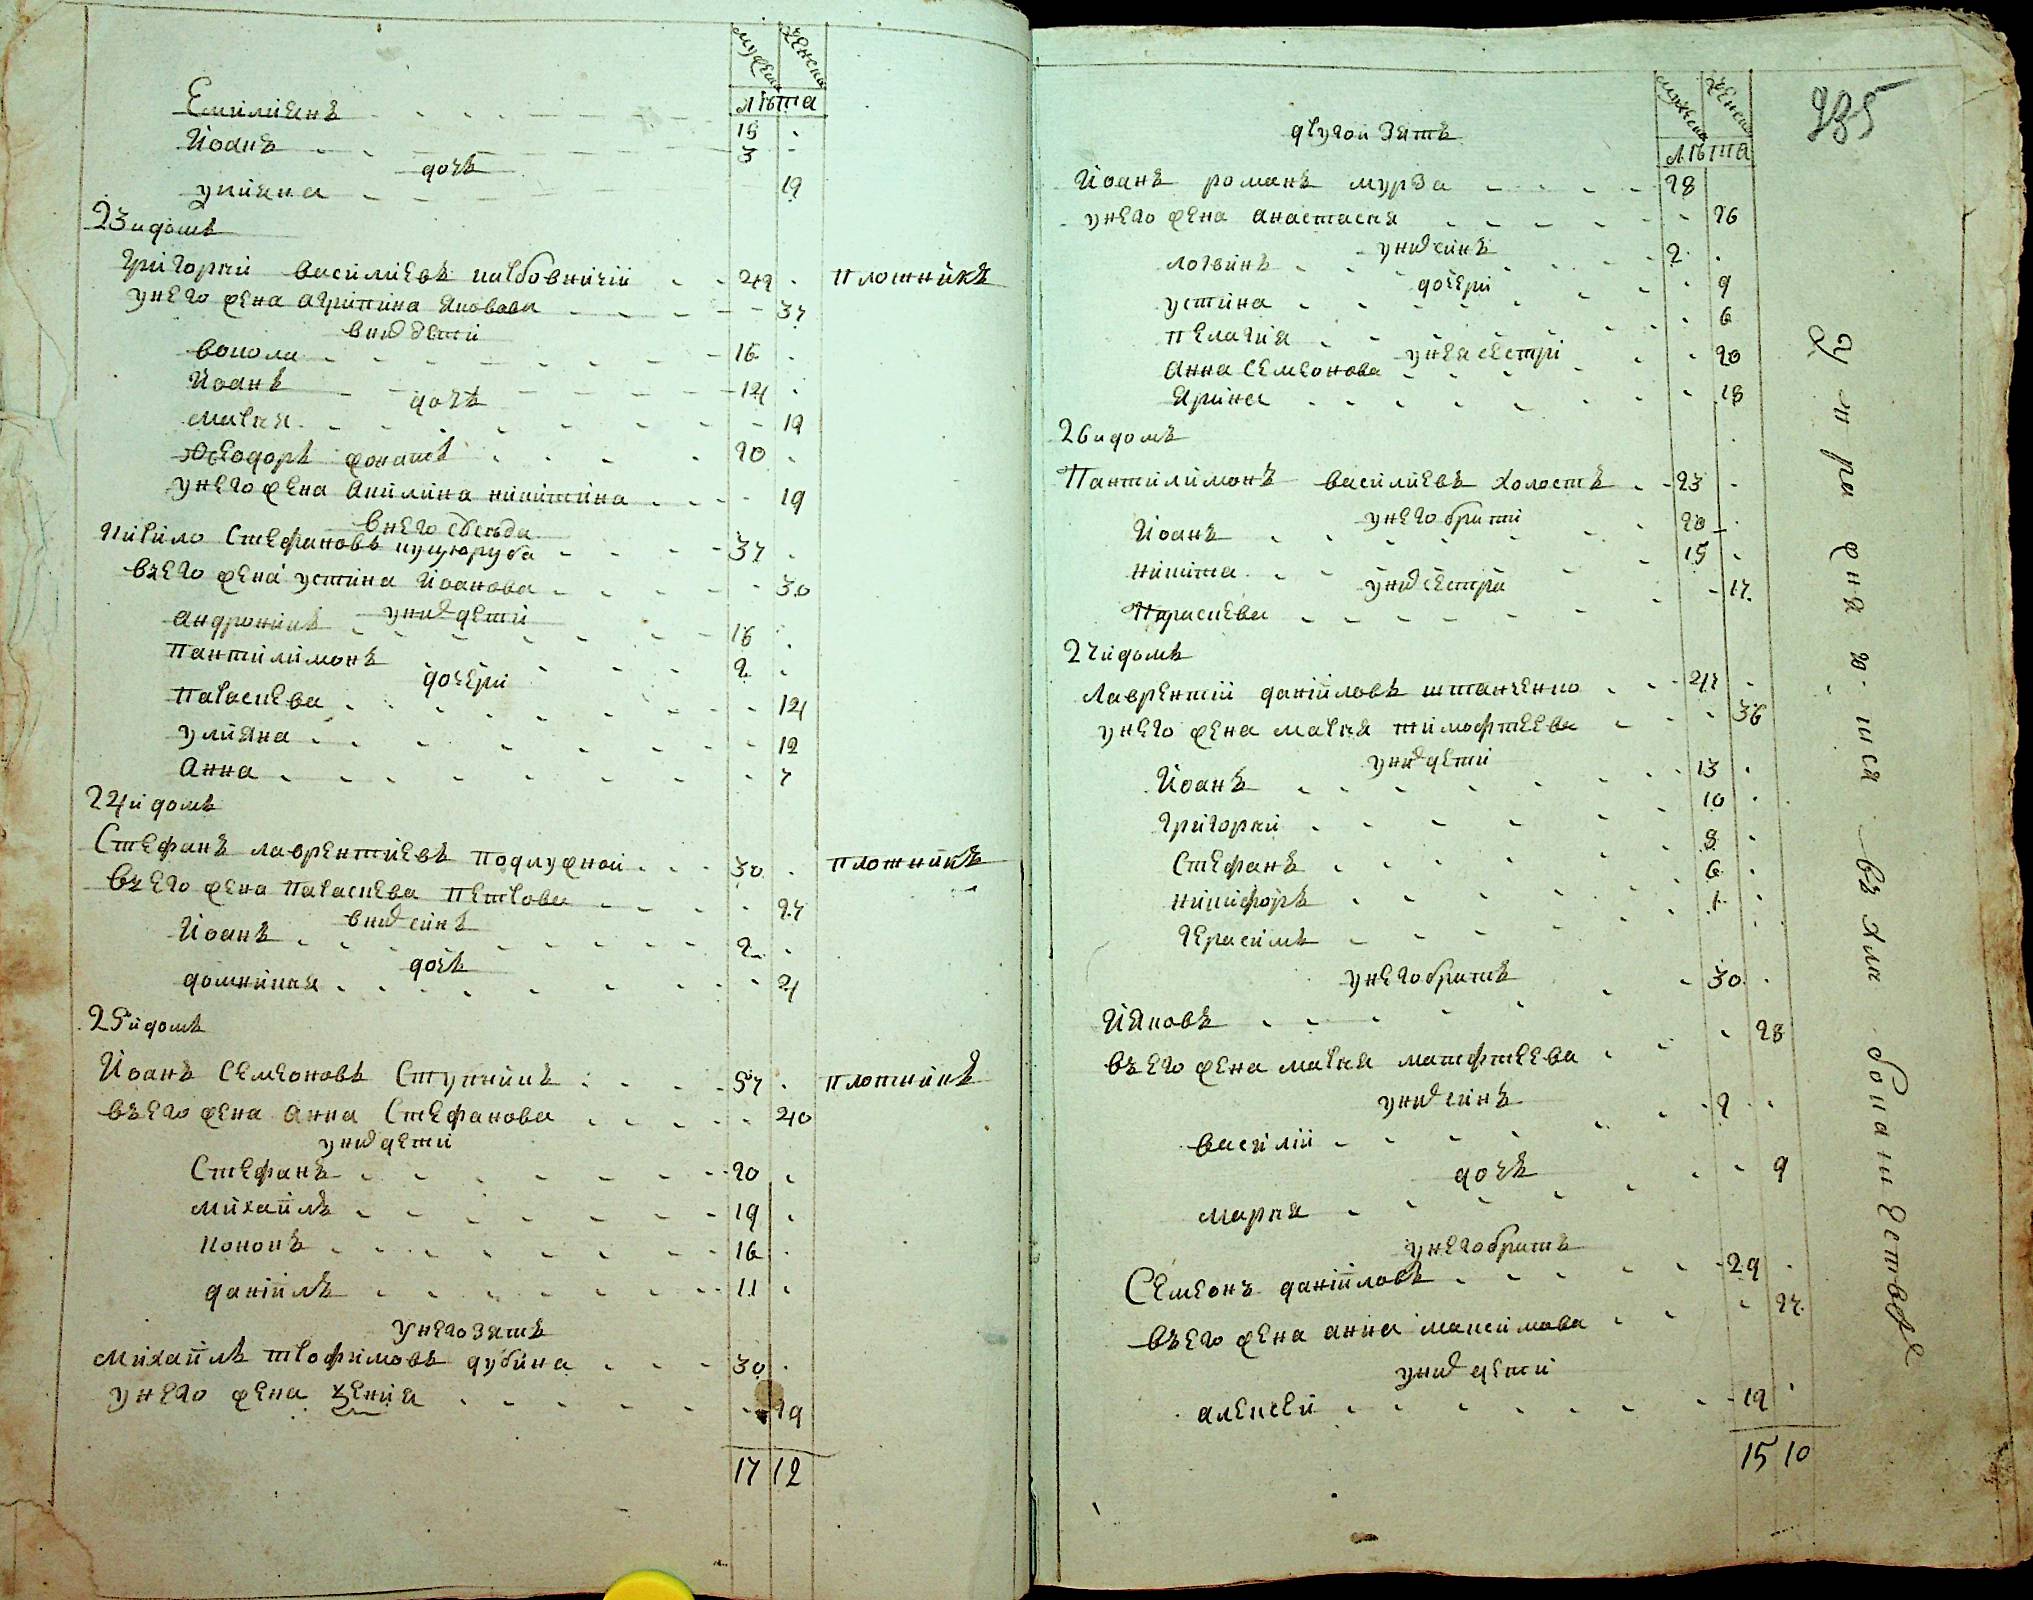 мужска женска
лѣта
Емилиянъ 15
Йоанъ 3
дочъ
улияна 19
23 й домъ
Григорий василиевъ 42 плотникъ
унего жена агрипина яковова 37
вних дети
вокола 16
Йоанъ 14
дочъ
мария 12
Феодоръ 20
унего жена акилина никитина 19
внего
Стефановъ 37
въего жена устина йоанова 30
уних дети
андроникъ 16
пантилимонъ 2
дочери
параскева 14
улияна 12
анна 7
24 й домъ
Стефанъ лаврентиевъ подлужной 30 плотникъ
въего жена параскева петрова 27
вних синъ
Йоанъ 2
дочъ
домникия 4
25 й домъ
Йоанъ Семеоновъ Ступникъ 57 плотникъ
въего жена анна Стефанова 40
уних дети
Стефанъ 20
михаилъ 19
кононъ 16
даниилъ 11
унего зять
михаилъ трофимовъ дубина 30
унего жена ксения 29
17 12
мужска женска
лѣта
235
другой зять
Йоанъ романъ мурза 28
унего жена анастасия 26
уних синъ
логвинъ 2
дочери
устина 9
пелагия 6
унея сестри
анна семеонова 20
ярина 18
26 й домъ
Пантилимонъ василиевъ холостъ 23
унего брати
Йоанъ 20
никита 15
уних сестри
Параскева 17
27 й домъ
лаврентий данииловъ штанченко 47
унего жена мария тимофтеева 36
уних дети
Йоанъ 13
григорий 10
Стефанъ 8
никифоръ 6
герасимъ 1
унего братъ
Йяковъ 30
въего жена мария матфтеева 28
уних синъ
василий 2
дочъ
мария 9
унего братъ
Семеонъ данииловъ 29
въего жена анна максимова 27
уних дети
алексей 12
15 10